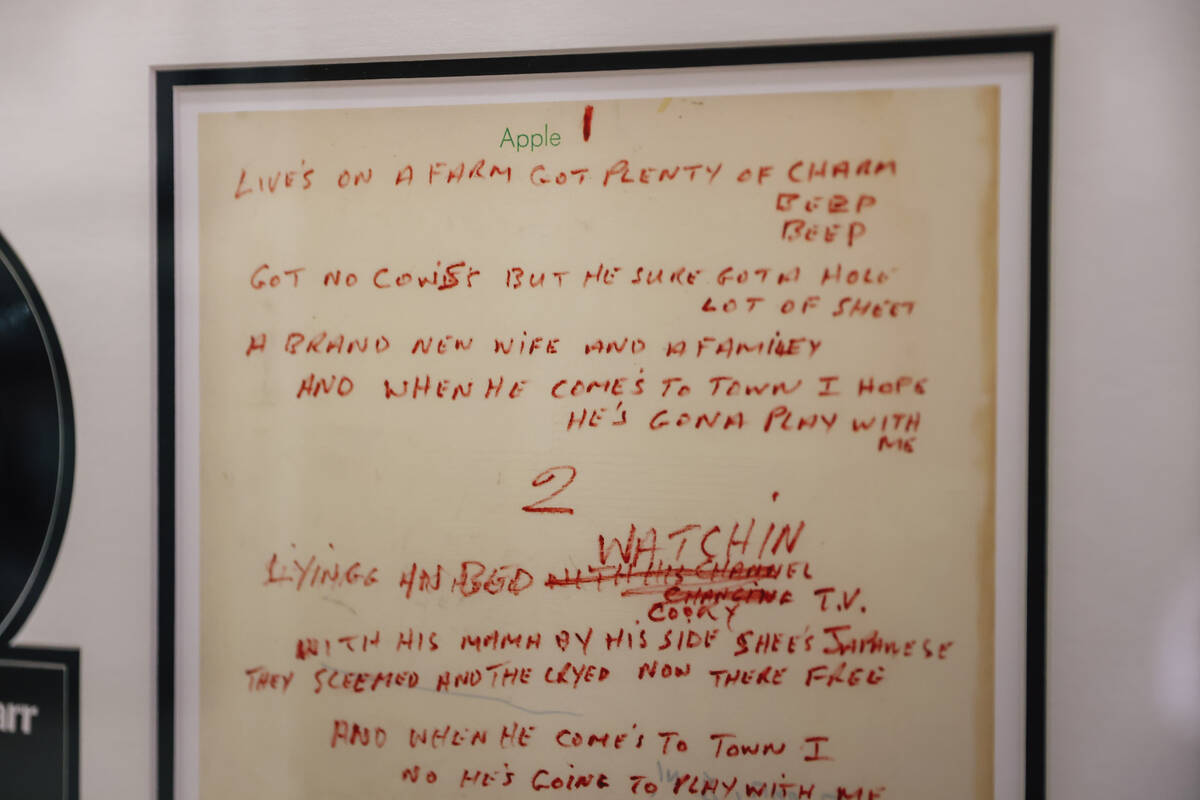 Apple 1
LIVE'S ON A FARM GOT PLENTY OF CHARM
BEEP
BEEP
GOT NO COWES BUT HE SURE GOT A HOLE
LOT OF SHEET
A BRAND NEW WIFE AND A FAMILEY
AND WHEN HE COME'S TO TOWN I HOPE
HE'S GONA PLAY WITH
ME
2
WATCHIN
LYINGG IN BED WITH HIS CHANNEL
CHANGING T.V.
COOKY
WITH HIS MAMA BY HIS SIDE SHEE'S JAPANESE
THEY SCEEMED AND THE CRYED NOW THERE FREE
AND WHEN HE COME'S TO TOWN I
NO HE'S GOING TO PLAY WITH ME
arr